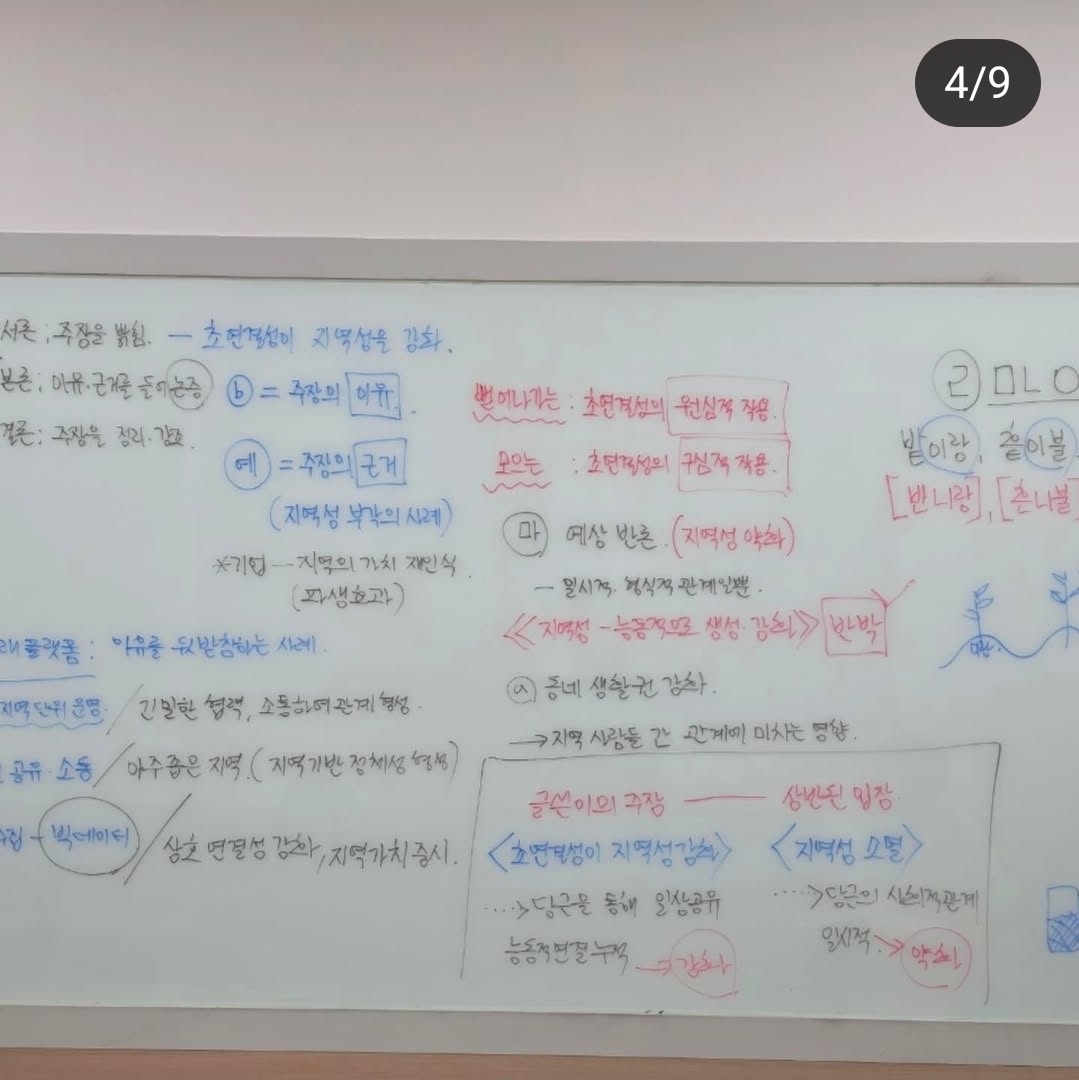 4/9
서론; 주장을 밝힘. — 초연결성이 지역성을 강화.
본론; 이유·근거를 들어 논증
결론; 주장을 정리·강조.
ⓑ = 주장의 이유.
예 = 주장의 근거
(지역성 부각의 사례)
*기업 -- 지역의 가치 재인식.
(파생효과)
래플랫폼: 이유를 뒷받침하는 사례.
지역단위 운영 / 긴밀한 협력, 소통하며 관계 형성.
공유·소통 / 아주 좁은 지역. (지역기반 정체성 형성)
수집 - 빅데이터 / 상호 연결성 강화, 지역가치 중시.
뻗어나가는 : 초연결성의 원심적 작용.
모으는 : 초연결성의 구심적 작용.
마 예상 반론. (지역성 약화)
— 일시적. 형식적 관계일뿐.
《지역성 - 능동적으로 생성·강화》 반박
ⓐ 동네 생활권 강화.
→ 지역 사람들 간 관계에 미치는 영향.
글쓴이의 주장 — 상반된 입장
<초연결성이 지역성강화> <지역성 소멸>
····> 당근을 통해 일상공유
능동적연결 누적 → 강화
····> 당근의 사회적관계
일시적. → 약화
2 ㅁㄴㅇ
밭이랑, 홑이불.
[반니랑], [혼니불